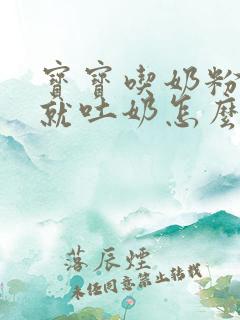 寶寶喫奶粉
就吐奶怎麼
落辰煙
未经同意禁止转载